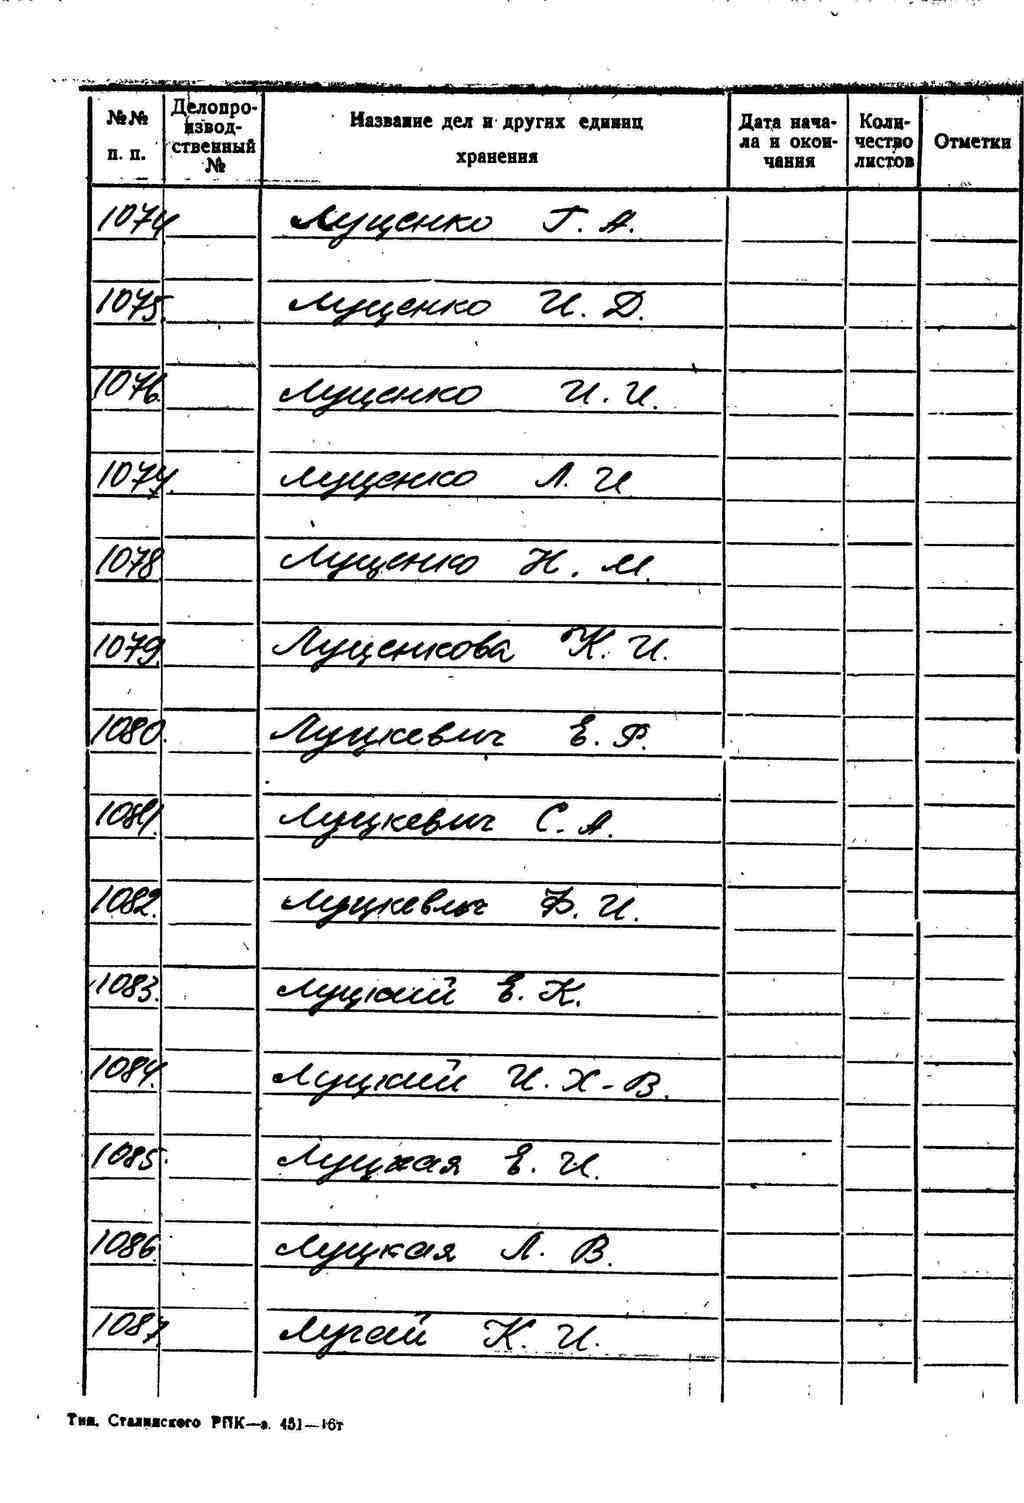 №№ п. п. Делопро-извод-ственный № Название дел и других единиц хранения Дата нача-ла и окон-чания Коли-чество листов Отметки
1074 Луценко Г. А.
1075. Луценко И. Д.
1076. Луценко И. И.
1077. Луценко Л. И
1078 Луценко Н. М.
1079. Луценкова К. И.
1080. Луцкевич Е. Ф.
1081. Луцкевич С. А.
1082. Луцкевич Ф. И.
1083. Луцкий Е. К.
1084. Луцкий И. Х-В.
1085. Луцкая Е. И.
1086 Луцкая Л. В.
1087. Лучай К. И.
Тип. Сталинского РПК—з. 451—16т